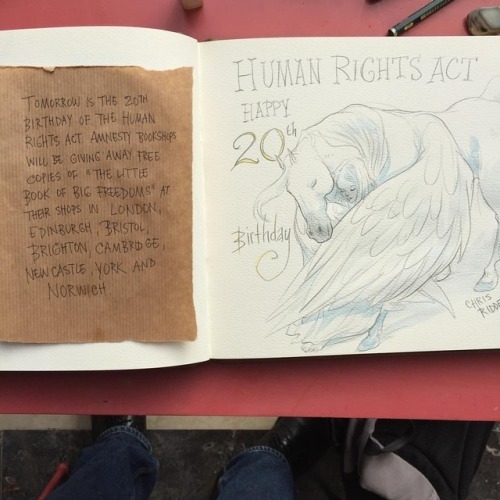 TOMORROW IS THE 20TH
BIRTHDAY OF THE HUMAN
RIGHTS ACT. AMNESTY BOOKSHOPS
WILL BE GIVING AWAY FREE
COPIES OF "THE LITTLE
BOOK OF BIG FREEDOMS" AT
THEIR SHOPS IN LONDON,
EDINBURGH, BRISTOL,
BRIGHTON, CAMBRIDGE,
NEWCASTLE, YORK AND
NORWICH.
HUMAN RIGHTS ACT
HAPPY
20th
Birthday
CHRIS